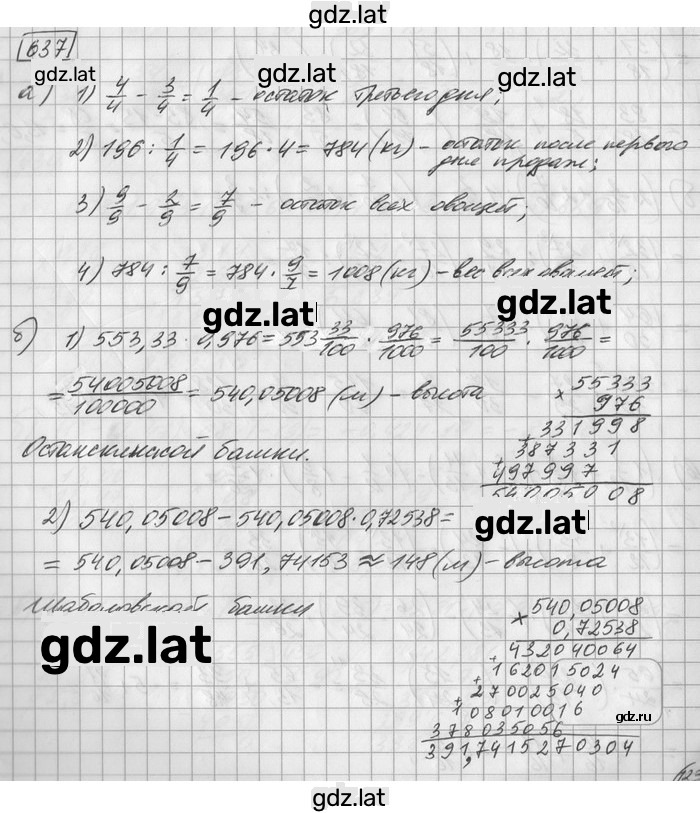 gdz.lat
637
gdz.lat
а) 1) 4/4 - 3/4 = 1/4 - остаток третьего дня;
2) 196 : 1/4 = 196 · 4 = 784 (кг) - остаток после первого
дня продаж;
3) 9/9 - 2/9 = 7/9 - остаток всех овощей;
4) 784 : 7/9 = 784 · 9/7 = 1008 (кг) - вес всех овощей;
gdz.lat
gdz.lat
б) 1) 553,33 · 0,976 = 553 33/100 · 976/1000 = 55333/100 · 976/100 =
= 54005008/100000 = 540,05008 (м) - высота
Останскинской башни.
× 55333
976
+ 331998
+ 387331
497997
54005008
2) 540,05008 - 540,05008 · 0,72538 =
gdz.lat
= 540,05008 - 391,74153 ≈ 148 (м) - высота
Шаболовской башни
gdz.lat
× 540,05008
0,72538
+ 432040064
+ 162015024
+ 270025040
+ 108010016
378035056
391,7415270304
gdz.ru
gdz.lat